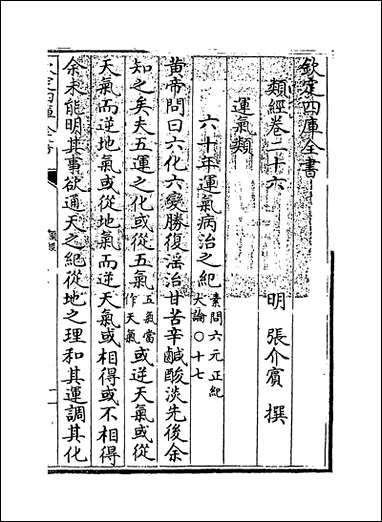 欽定四庫全書
類經卷二十六
明 張介賓 撰
運氣類
六十年運氣病治之紀素問六元正紀大論○十七
黃帝問曰六化六變勝復淫治甘苦辛鹹酸淡先後余
知之矣夫五運之化或從五氣五氣當作天氣或逆天氣或從
天氣而逆地氣或從地氣而逆天氣或相得或不相得
余未能明其事欲通天之紀從地之理和其運調其化